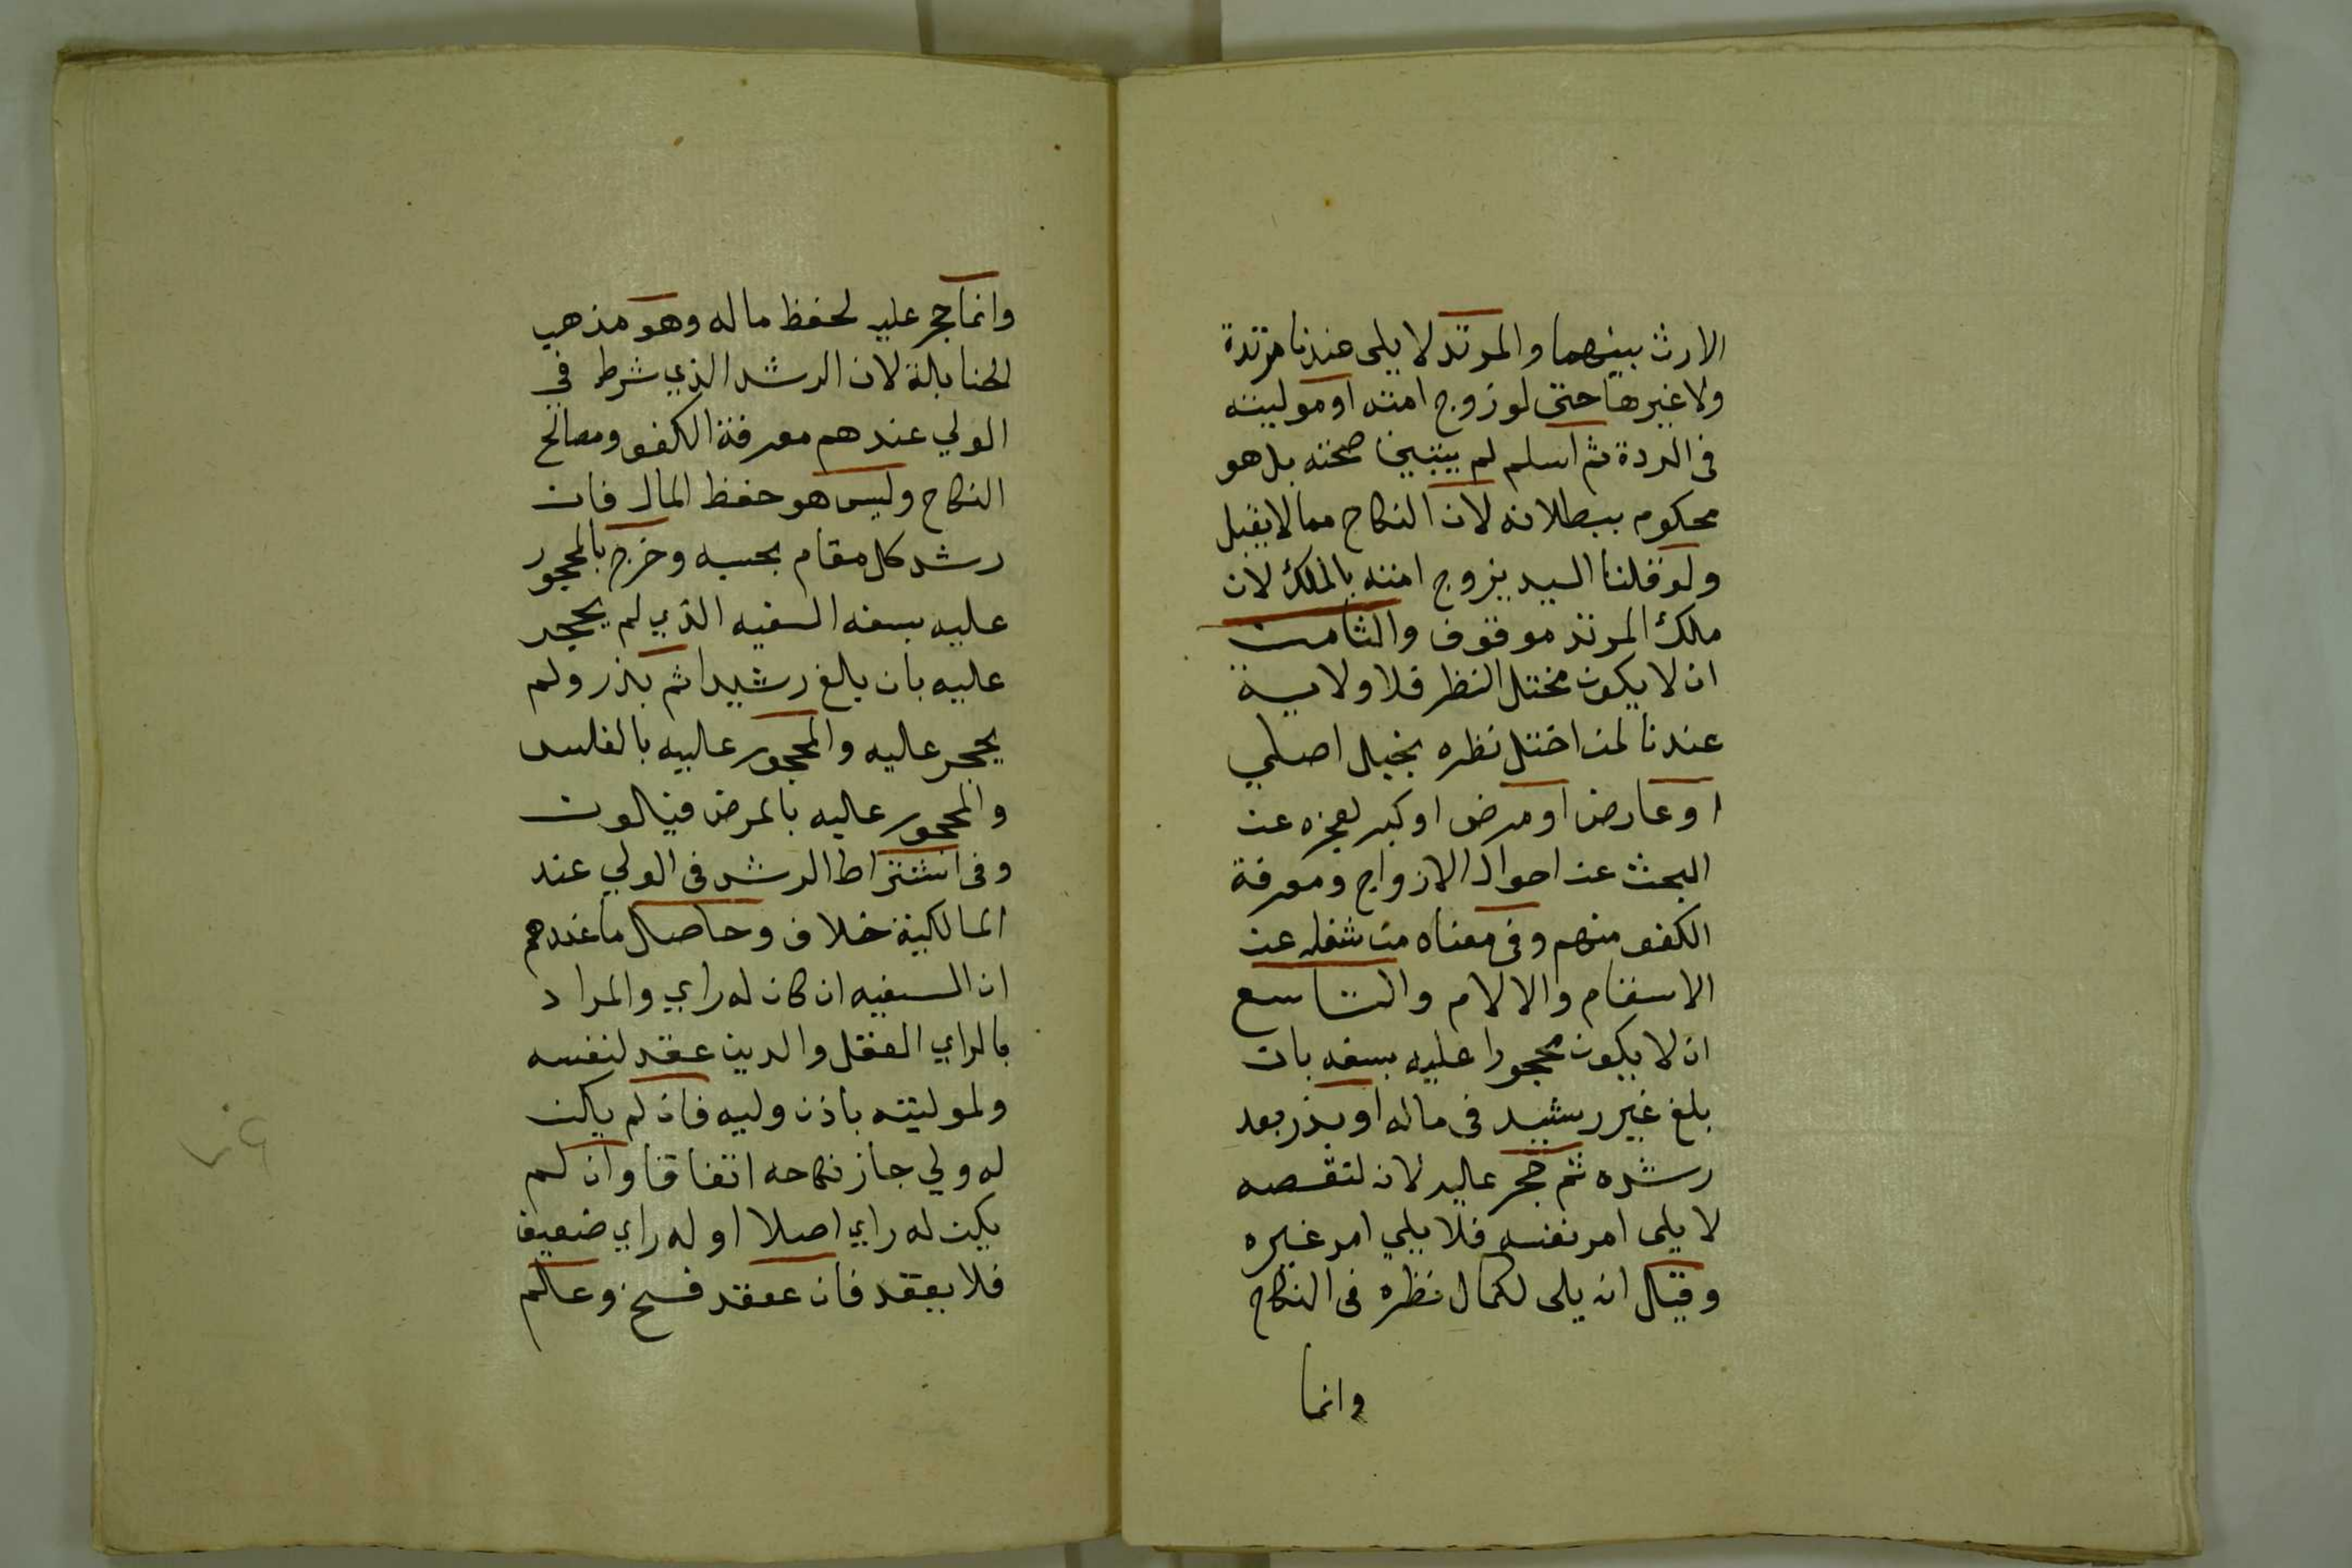 الارث بينهما والمرتد لا يلى عندنا مرتدة
ولا غيرها حتى لو زوج امته او موليته
فى الردة ثم اسلم لم يتبين صحته بل هو
محكوم ببطلانه لان النكاح مما لا يقبل
ولو قلنا السيد يزوج امته بالملك لان
ملك المرتد موقوف والثامن
ان لا يكون مختل النظر فلا ولاية
عندنا لمن اختل نظره بخبل اصلي
او عارض او مرض او كبر لعجزه عن
البحث عن احوال الازواج ومعرفة
الكفو منهم وفى معناه من شغله عن
الاسقام والالام والتاسع
ان لا يكون محجورا عليه بسفه بان
بلغ غير رشيد فى ماله او بذر بعد
رشده ثم حجر عليه لانه لنقصه
لا يلى امر نفسه فلا يلي امر غيره
وقيل انه يلى لكمال نظره فى النكاح
وانما
وانما حجر عليه لحفظ ماله وهو مذهب
الحنابلة لان الرشد الذي شرط في
الولي عندهم معرفة الكفو ومصالح
النكاح وليس هو حفظ المال فان
رشد كل مقام بحسبه وخرج بالمحجور
عليه بسفه السفيه الذي لم يحجر
عليه بان بلغ رشيدا ثم بذر ولم
يحجر عليه والمحجور عليه بالفلس
والمحجور عليه بالمرض فيلون
وفى اشتراط الرشد فى الولي عند
المالكية خلاف وحاصل ما عندهم
ان السفيه ان كان له راي والمراد
بالراي العقل والدين عقد لنفسه
ولموليته باذن وليه فان لم يكن
له ولي جاز نكاحه اتفاقا وان لم
يكن له راي اصلا او له راي ضعيف
فلا يعقد فان عقد فسخ وعلم